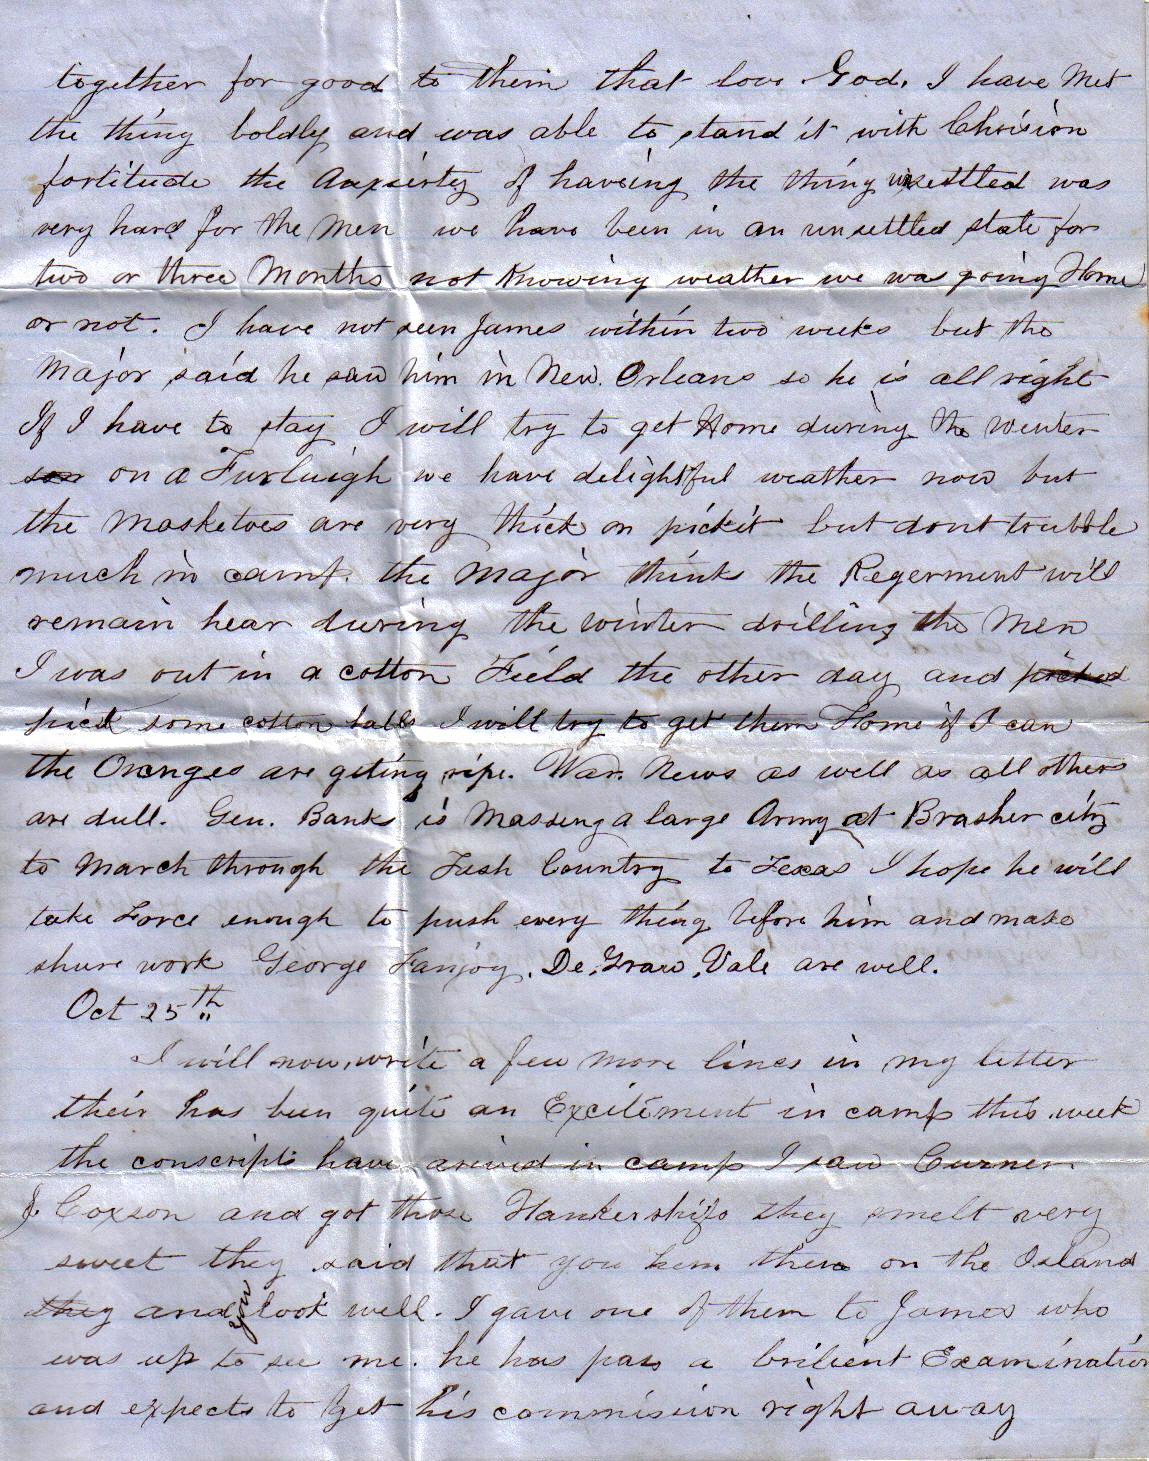 together for good to them that love God, I have Met
the thing boldly and was able to stand it with Chrision
fortitude the Anxierty of haveing the thing unsettled was
very hard for the Men we have been in an unsettled state for
two or three Months not Knowing weather we was going Home
or not. I have not seen James within two weeks but the
Major said he saw him in New. Orleans so he is all right
If I have to stay I will try to get Home during the Winter
son on a Furleigh we have delightful weather now but
the Masketoes are very thick on pickit but dont trubble
much in camp. the Major thinks the Regerment will
remain hear during the winter drilling the Men
I was out in a cotton Field the other day and picked
pick some cotton balls I will try to get them Home if I can
the Orenges are geting ripe. War. News as well as all others
are dull. Gen. Banks is Massing a large Army at Brasher city
to March through the Tash Country to Texas I hope he will
take Force enough to push every thing before him and make
shure work George Fanjoy. De, Graw, Vale are well.
Oct 25th"
I will now, write a few more lines in my letter
their has been quite an Excitement in camp this week
the conscripts have arived in camp I saw
J Coxson and got those Hankershifs they smelt very
sweet they said that you hem them on the Island
they and you look well. I gave one of them to James who
was up to see me. he has pass a brilient Examination
and expects to get his commission right away